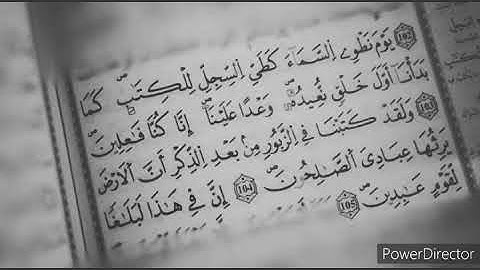 102 يَوْمَ نَطْوِے اِ۬لسَّمَآءَ كَطَيِّ اِ۬لسِّجِلِّ لِلْكِتَٰبِۖ كَمَا
بَدَأْنَآ أَوَّلَ خَلْقٖ نُّعِيدُهُۥۖ وَعْداً عَلَيْنَآۖ إِنَّا كُنَّا فَٰعِلِينَۖ 103
وَلَقَدْ كَتَبْنَا فِے اِ۬لزَّبُورِ مِنۢ بَعْدِ اِ۬لذِّكْرِ أَنَّ اَ۬لَارْضَ
يَرِثُهَا عِبَادِيَ اَ۬لصَّٰلِحُونَۖ 104 إِنَّ فِے هَٰذَا لَبَلَٰغاٗ
لِّقَوْمٍ عَٰبِدِينَۖ 105
PowerDirector